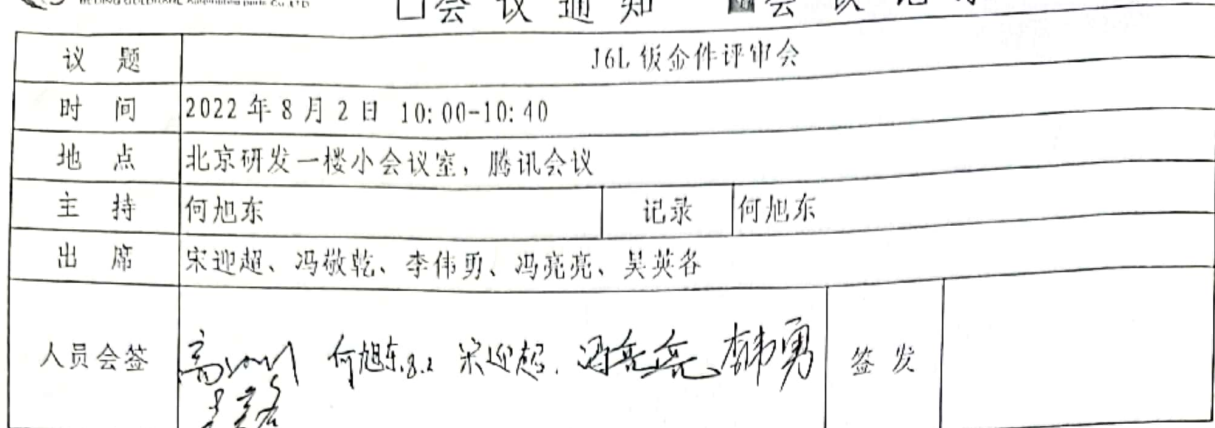 □会议通知 ■会议记
议题 J6L钣金件评审会
时间 2022年8月2日 10:00-10:40
地点 北京研发一楼小会议室，腾讯会议
主持 何旭东 记录 何旭东
出席 宋迎超、冯敬乾、李伟勇、冯亮亮、吴英各
人员会签 何旭东8.2 宋迎超. 冯亮亮 李伟勇 签发
吴英各